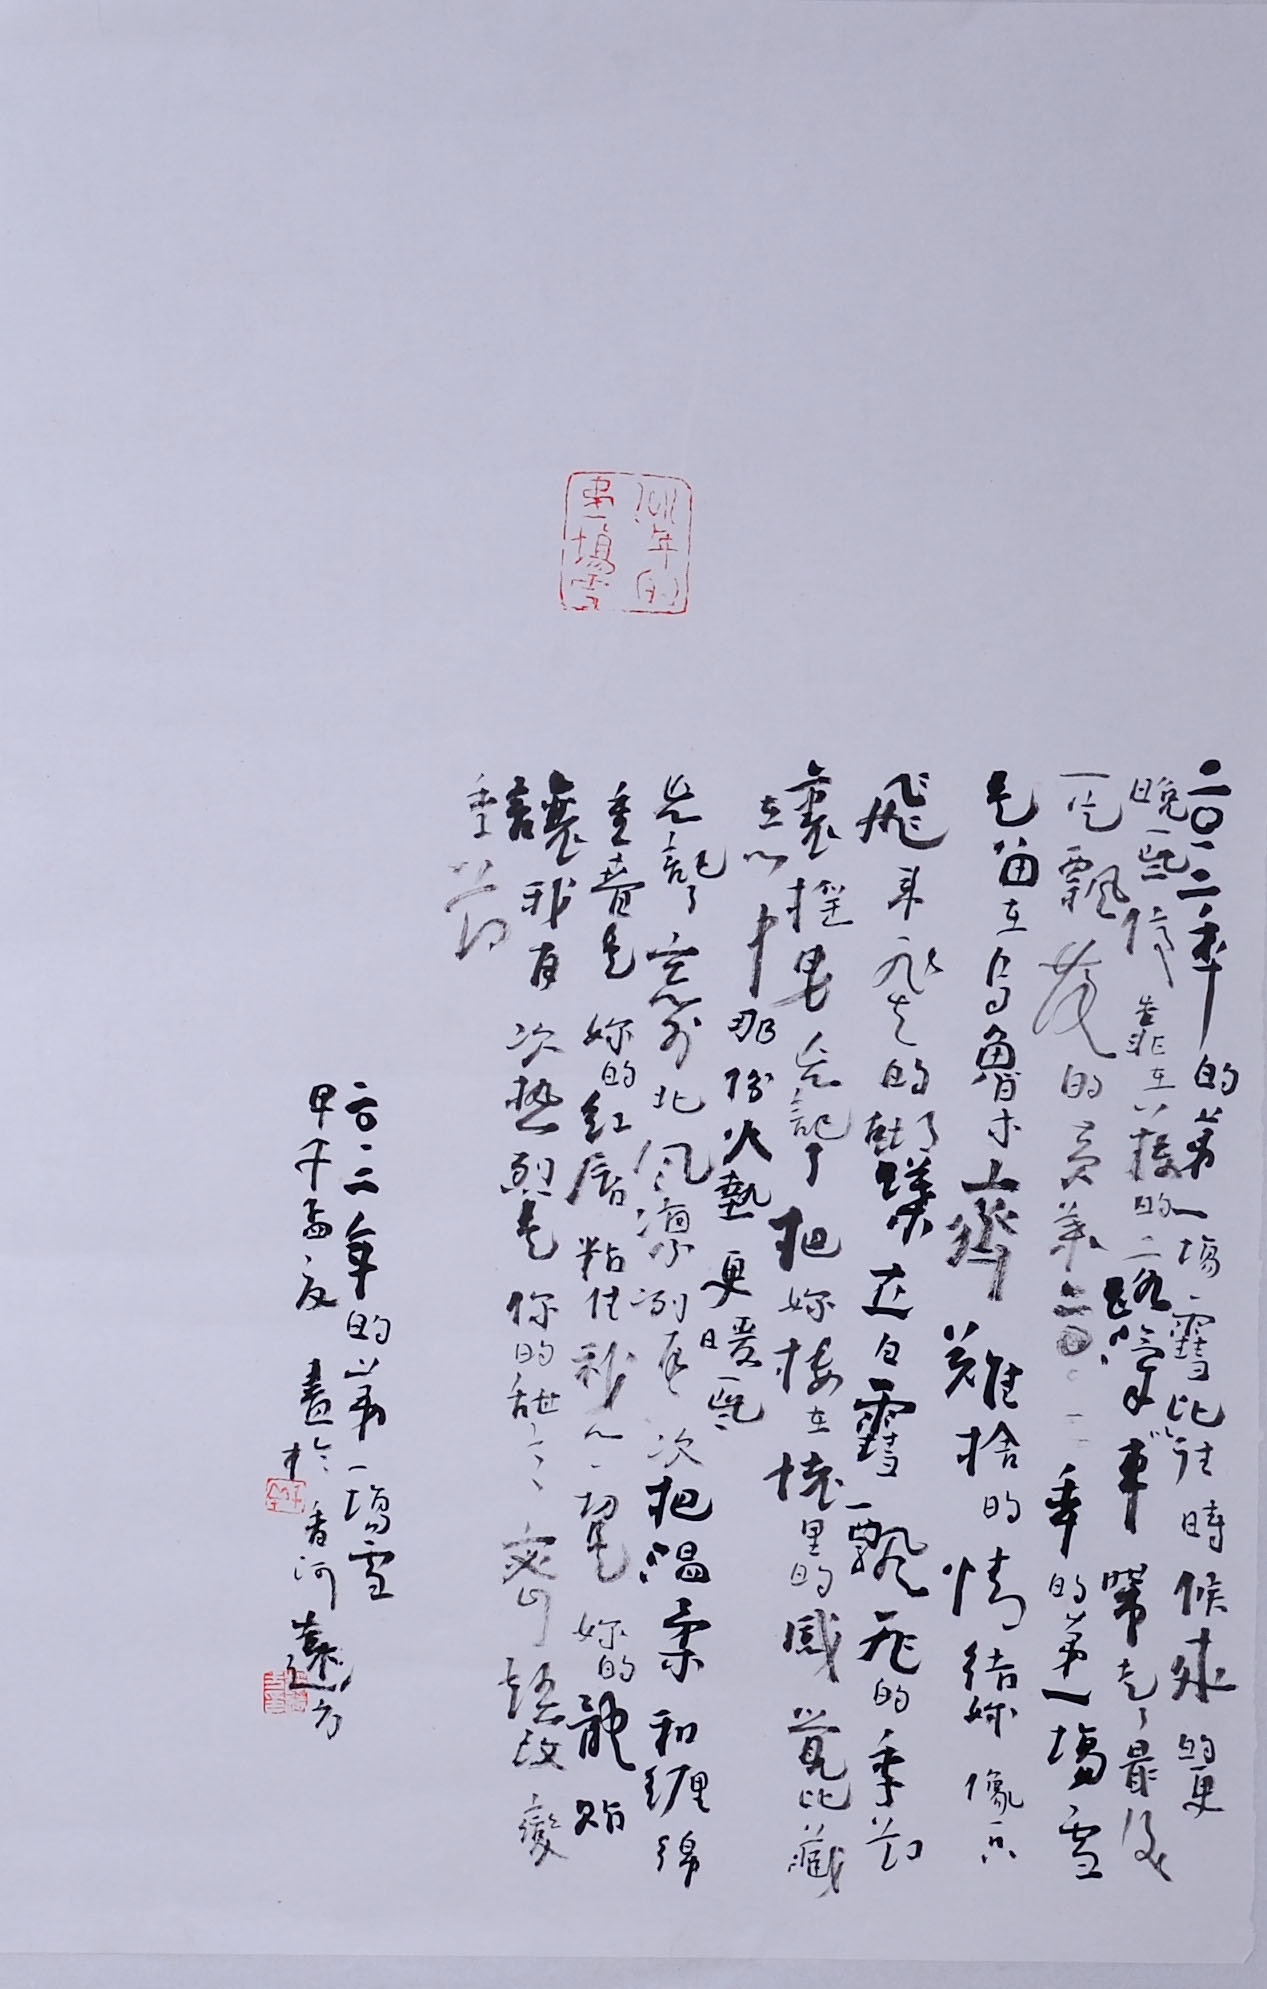 二〇〇二年的第一場雪比往時候來的更
晚一些停靠在八樓的二路汽車帶走了最後
一片飄落的黃葉二〇〇二年的第一場雪
是留在烏魯木齊難捨的情結妳像一只
飛來飛去的蝴蝶在白雪飄飛的季節
裏搖曳忘記了把妳摟在懷里的感覺比藏
在心中那份火熱更暖一些
忘記了窗外北風凛冽再一次把温柔和缠綿
重叠是妳的红唇粘住我的一切是妳的體貼
讓我再次热烈是你的甜言蜜語改變
季節
二〇〇二年的第一場雪
甲午孟夏書於香河遠方
年的
第一場雪